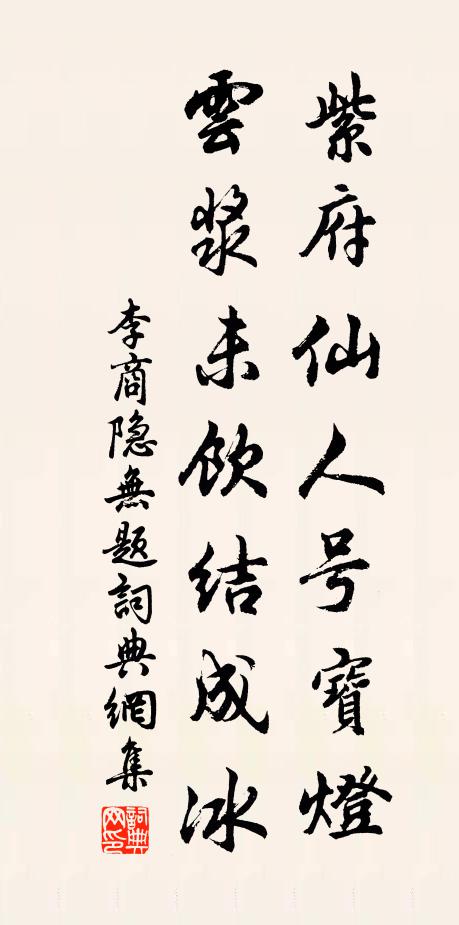 紫府仙人号寶燈
雲漿未飲結成冰
李商隐無题詞典網集
詞典网印